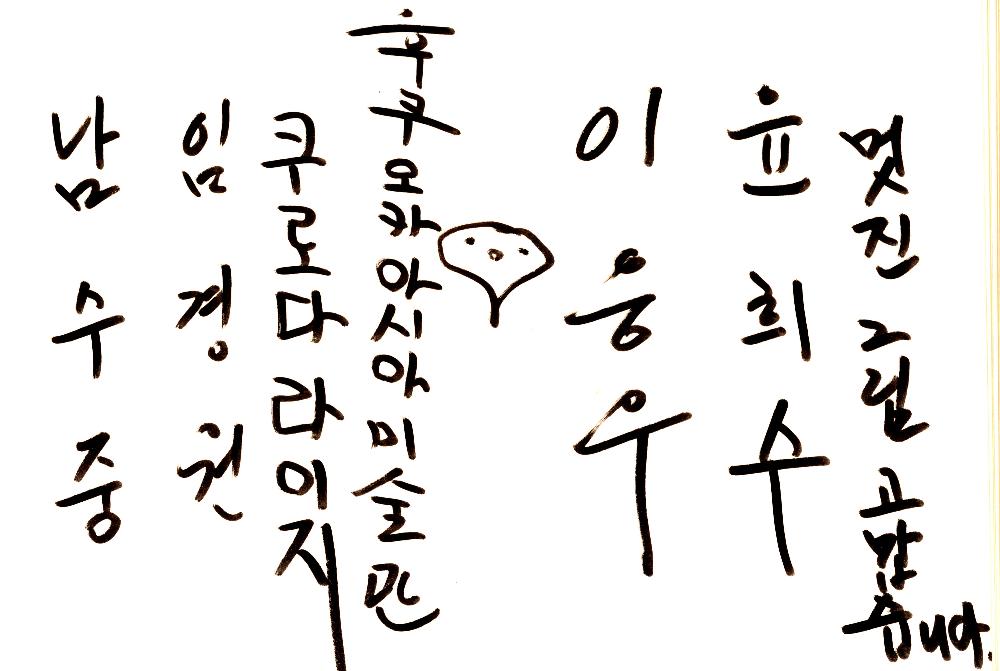 멋진 그림 고맙습니다.
윤 희 수
이 응 우
후쿠오카 아시아 미술관
쿠로다 라이지
임 경 천
남 수 중